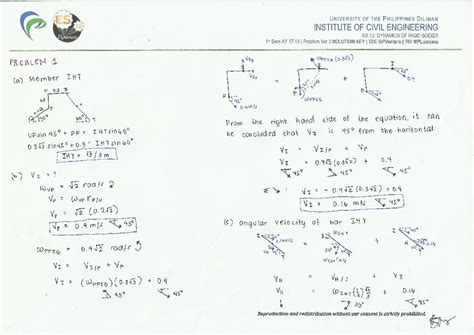 UNIVERSITY OF THE PHILIPPINES DILIMAN
INSTITUTE OF CIVIL ENGINEERING
ES 12: DYNAMICS OF RIGID BODIES
1st Sem AY 17-18 | Problem Set 2 SOLUTION KEY |
ES 12
Dynamics
PROBLEM 1
(a) Member IHT
UP sin 45° + PF = IHT sin 60°
0.2√2 sin 45° + 0.3 = IHT sin 60°
IHT = √3/3 m
(b) V_I = ?
ω_UP = √2 rad/s
V_P = ω_UP r_P/U
V_P = √2 (0.2√2)
V_P = 0.4 m/s 45°
ω_PPIG = 0.4√2 rad/s
V_I = V_I/P + V_P
V_I = (ω_PPIG)(0.3√2) + 0.4
45°
From the right hand side of the equation, it can
be concluded that V_I is 45° from the horizontal.
V_I = V_I/P + V_P
V_I = 0.4√2 (0.3√2) + 0.4
45° 45° 45°
V_I = - 0.4√2 (0.3√2) + 0.4
V_I = 0.16 m/s 45°
(c) angular velocity of bar IHT
V_H = V_H/I + V_I
Reproduction and redistribution without our consent is strictly prohibited.